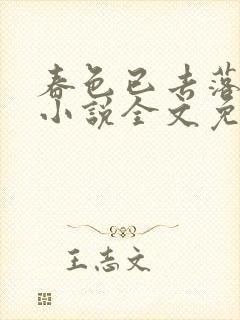 春色已去落
小说全文免
王志文